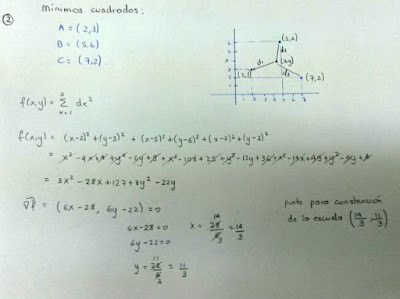 ② Mínimos cuadrados:
A = (2,3)
B = (5,6)
C = (7,2).
(5,6)
d2
d1
(x,y)
(2,3)
d3
(7,2)
6
5
4
3
2
1
1 2 3 4 5 6 7
f(x,y) = Σ dk²
k=1
f(x,y) = (x-2)² + (y-3)² + (x-5)² + (y-6)² + (x-7)² + (y-2)²
= x² - 4x + 4 + y² - 6y + 9 + x² - 10x + 25 + y² - 12y + 36 + x² - 14x + 49 + y² - 4y + 4
= 3x² - 28x + 127 + 3y² - 22y
∇f = (6x - 28, 6y - 22) = 0
6x - 28 = 0 x = 28/6 = 14/3
6y - 22 = 0
y = 11/3
punto para construcción
de la escuela (14/3, 11/3)